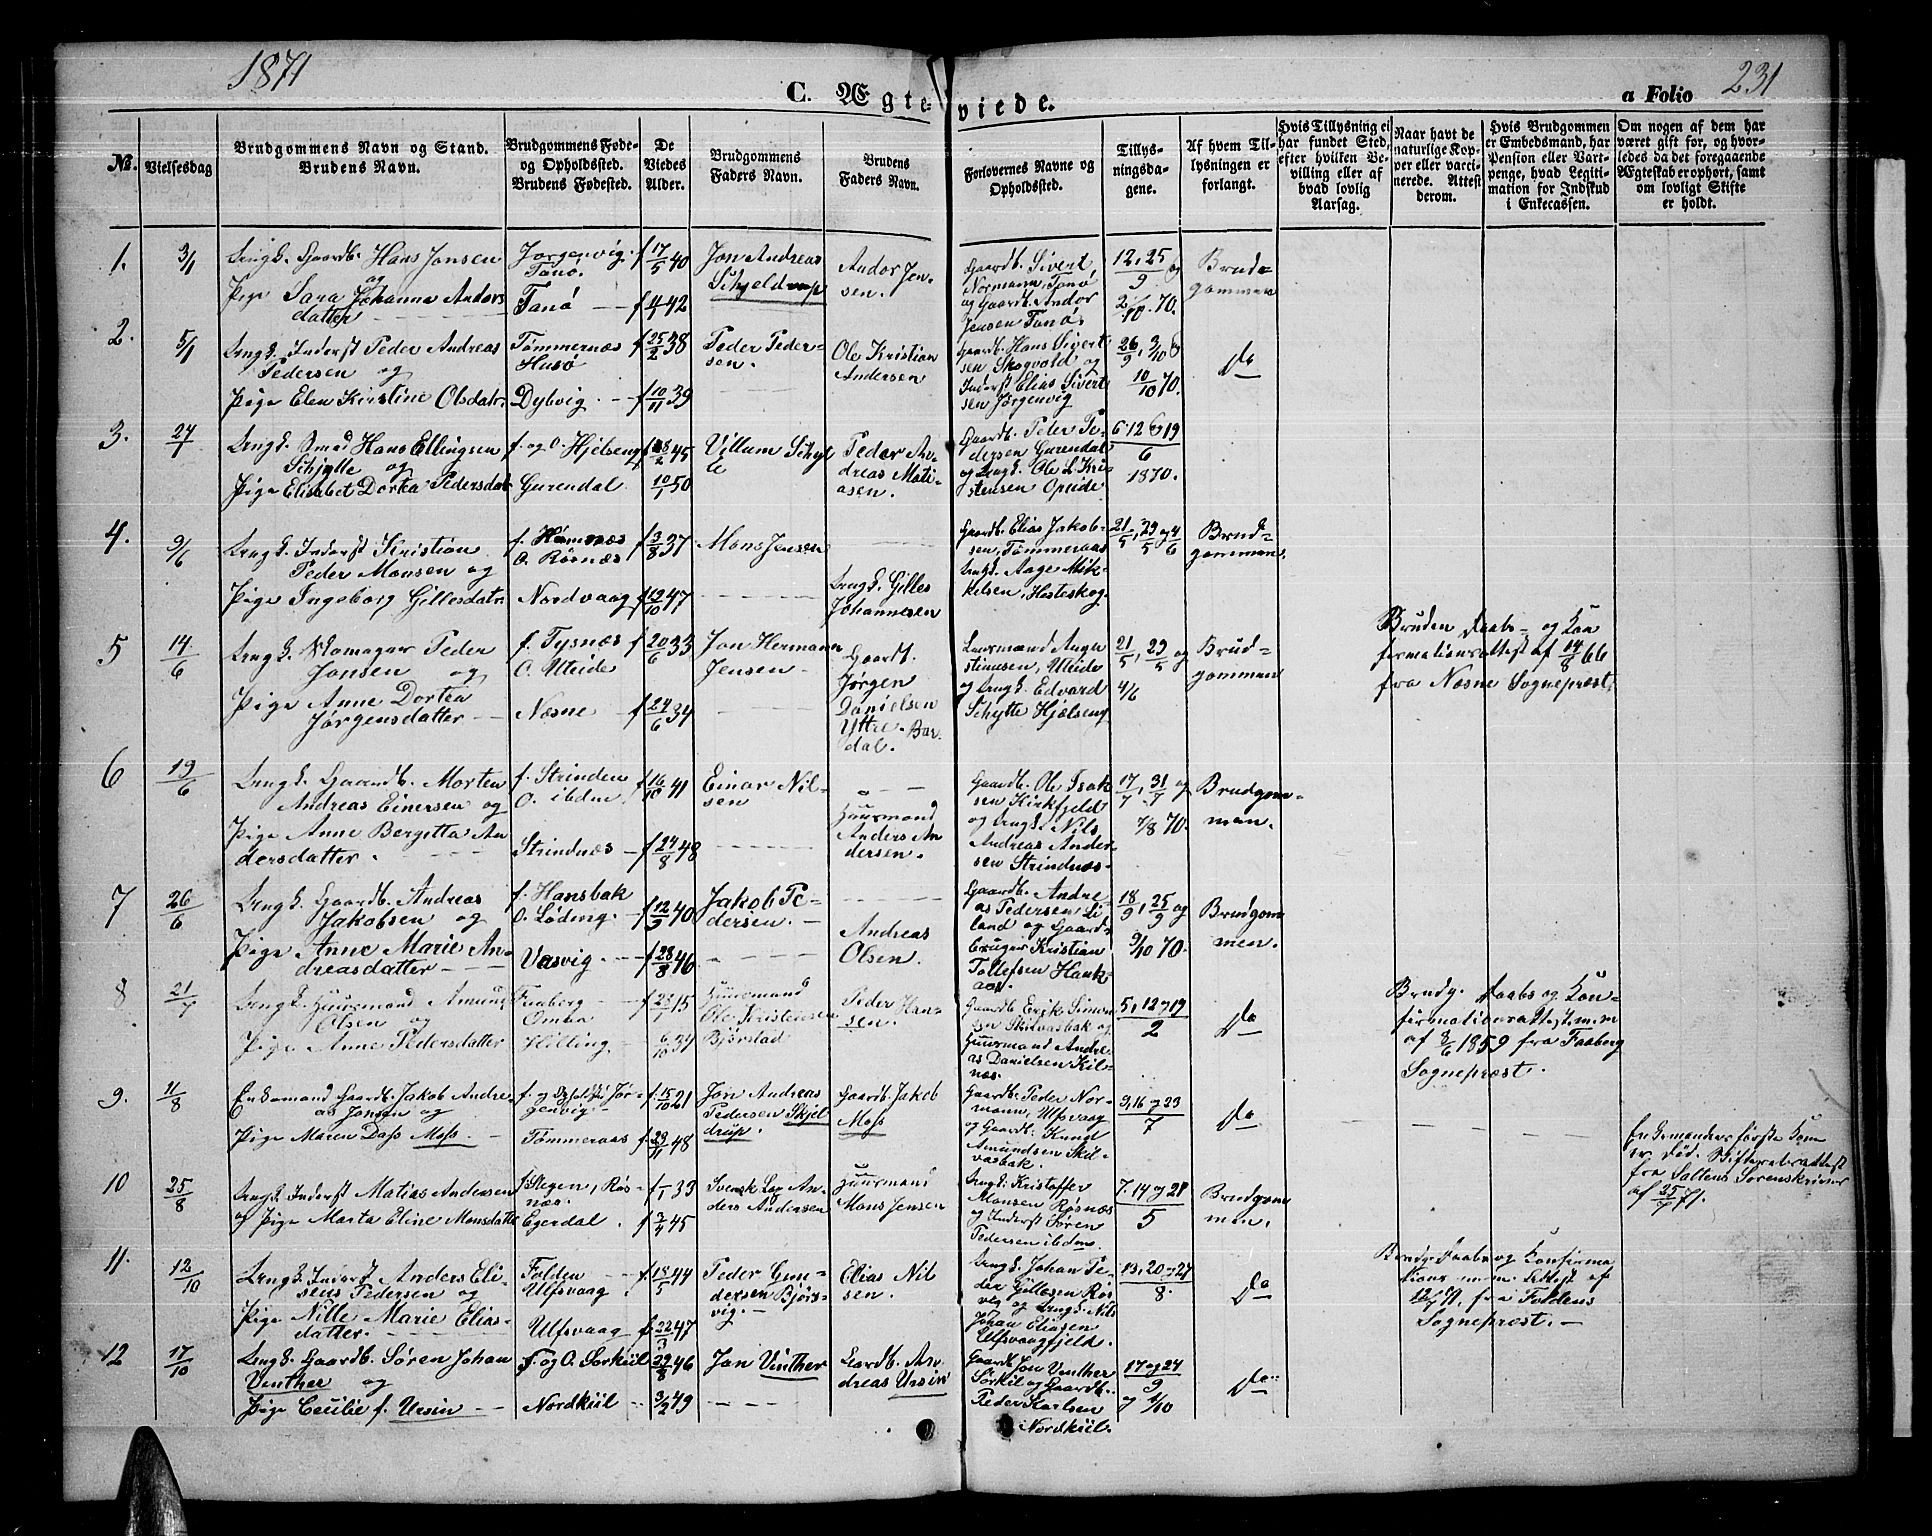 1871
C. Ægteviede.
a Folio 231
№.
Vielsesdag
Brudgommens Navn og Stand.
Brudens Navn.
Brudgommens Føde-
og Opholdssted.
Brudens Fødested.
De
Viedes
Alder.
Brudgommens
Faders Navn.
Brudens
Faders Navn.
Forlovernes Navne og
Opholdssted.
Tillys-
ningsda-
gene.
Af hvem Til-
lysningen er
forlangt.
Hvis Tillysning ei
har fundet Sted,
efter hvilken Be-
villing eller af
hvad lovlig
Aarsag.
Naar havt de
naturlige Kop-
per eller vacci-
nerede. Attest
derom.
Hvis Brudgommen
er Embedsmand, har
Pension eller Vart-
penge, hvad Legiti-
mation for Indskud
i Enkecassen.
Om nogen af dem har
været gift før, og hvor-
ledes da det foregaaende
Ægteskab er ophørt, samt
om lovligt Skifte
er holdt.
1. 3/1
Ungk. Gaardb. Hans Jonsen
og
Pige Sara Johanna Andors
datter
Jørgenvig
Tanø.
Tanø
f 17/5 40
f 4/1 42
Jon Andreas
Schjeldrup
Andor Jen-
sen.
Gaardb. Sivert
Normann, Tanø
og Gaardb. Andor
Jensen Tanø.
12, 25 og
9
2/10 70.
Brud-
gommen
2. 5/1
Ungk. Inderst Peder Andreas
Pedersen og
Pige Elen Kirstine Olsdatr.
Tømmernæs
Husø
Dybvig
f 25/2 38
f 10/11 39
Peder Peder-
sen.
Ole Kristian
Andersen
Gaardb. Hans Sivert
sen Skogvold og
Inderst Elias Sivert
sen Jørgenvig
26/9, 3/10 og
10/10 70.
Do
3. 27/1
Ungk. Hans Ellingsen
Schjytte og
Pige Elisabet Dortea Pedersdatr
f. og O. Hjelseng
Gurendal.
45
10/1 50
Villum Schyt
te
Peder An-
dreas Mati-
asen.
Gaardb. Peter Pe-
dersen Gurendal
og Ungk. Ole L. Kri
stensen Opeide
6. 12 og 19
6
1870.
4. 9/6
Ungk. Inderst Kristian
Peder Monsen og
Pige Ingeborg Gillesdatr.
f. Hamnæs
O. Røsnæs
Nordvaag
f 3/8 37
f 19/10 47
Mons Jensen
Ungk. Gilles
Johannesen
Gaardb. Elias Jakob-
sen, Tømmeraas
Ungk. Aage Mik-
kelsen, Hesteskog.
21/5, 29/5 og 4/6
Brud-
gommen.
5 14/6
Ungk. Peder
Jonsen og
Pige Anne Dortea
Jørgensdatter
f. Tysnæs
O. Uteide
Næsne
f 20/6 33
f 24/6 34
Jon Hermann
Jensen
Gaardb.
Jørgen
Danielsen
Yttre-Bar
dal.
Augu
stinusen, Uteide
og Ungk. Edvard
Schytte Hjelseng
21/5, 29/5 og
4/6
Brud-
gommen
Bruden Daabs- og Kon
firmationsattest af 14/8 66
fra Næsne Sognepræst.
6 19/6
Ungk. Gaardb. Morten
Andreas Einersen og
Pige Anne Bergitta An
dersdatter.
f. Strinden
O. ibdm.
Strindnæs
f 16/10 41
f 24/8 48
Einar Nil-
sen
Huusmand
Anders An
dersen.
Gaardb. Ole Isak
sen Kirkfjeld
og Ungk. Nils
Andreas Ander-
sen Strindnæs.
17/7, 31/7 og
7/8 70.
Brudgom-
men.
7 26/6
Ungk. Gaardb. Andreas
Jakobsen og
Pige Anne Marie An-
dreasdatter
f. Hansbak
O. Løding.
Vasvig
f 12/9 40
f 28/8 46
Jakob Pe-
dersen.
Andreas
Olsen.
Gaardb. Andre-
as Pedersen Li-
land og Gaard-
bruger Kristian
Tollefsen
18/9, 25/9 og
9/10 70.
Brudgom
men.
8 21/7
Ungk. Huusmand Amund
Olsen og
Pige Anne Pedersdatter
Faaberg
Omba
Hilling
45
6/10 34
Huusmand
Ole Kristensen
Bjørstad
Peder Han-
sen.
Gaardb Erik Simon
sen Skilvasbak og
Huusmand Andre-
as Danielsen Kil-
næs.
5, 12 og 19
2
Do
Brudg. Daabs og Kon-
firmationsattest m.m
af 8/6 1859 fra Faaberg
Sognepræst.
9. 11/8
Enkemand Gaardb. Jakob Andre-
as Jonsen og
Pige Maren Dass Moss
f. og Opholdst. Jør-
genvig.
Tømmeraas
f. 15/10 21
f. 29/11 48
Jon Andreas
Pedersen Skjel
drup.
Gaardb. Jakob
Moss
Gaardb. Peder Nor-
mann, Ulfsvaag
og Gaardb. Knud
Amundsen Skil-
vasbak.
9, 16 og 23
7
Do
Enkemandens første Kone
er død. Skifteretsattest
fra Saltens Sorenskriver
af 25/7 71.
10 25/8
Ungk. Inderst Matias Andersen
og Pige Marta Eline Monsdatter
f Stegen, Røs-
næs.
Egerdal.
f 1/1 33
f 3/4 45
Svensk Lap An-
ders Andersen
Huusmand
Mons Jensen
Ungk. Kristoffer
Monsen Røsnæs
og Inderst Søren
Pedersen ibdm.
7. 14 og 21
5
Brudgom
men.
11. 12/10
Ungk. Inderst Anders Eli-
sens Pedersen og
Pige Nille Marie Elias-
datter.
Folden
Ulfsvaag
Ulfsvaag
f. 18/5 44
f. 22/3 47
Peder Gun-
dersen Bjørs-
vig.
Elias Nil
sen.
Ungk. Johan Pe-
der Gillesen Røs
og Ungk. Nils
Johan Eliasen
Ulfsvaagfjeld.
13, 20 og 27
8.
Do
Brudg. Daabs og Konfirma
tions m.m. Attest af
fra Foldens
Sognepræst.
12 17/10
Ungk. Gaardb. Søren Johan
Venther og
Pige Cecilie f. Ursin
F. og O. Sørkiil
Nordkiil
29/8 46
3/2 49
Jon Vinther
Gaardb. An-
dreas Ursin
Gaardb Jon Venther
Sørkil og Gaardb.
Peder Karlsen
Nordkiil.
17 og 24
9
og 1/10
Do